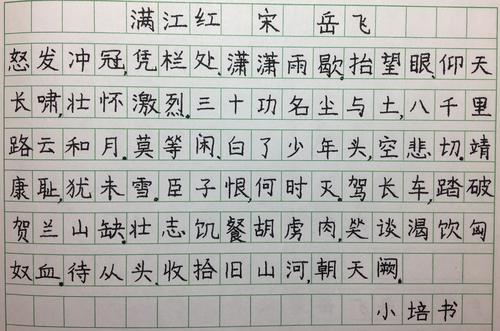 满江红 宋 岳飞
怒发冲冠,凭栏处.潇潇雨歇.抬望眼.仰天
长啸,壮怀激烈.三十功名尘与土,八千里
路云和月.莫等闲.白了少年头,空悲切.靖
康耻,犹未雪.臣子恨,何时灭.驾长车,踏破
贺兰山缺.壮志饥餐胡虏肉,笑谈渴饮匈
奴血.待从头.收拾旧山河,朝天阙.
小培书